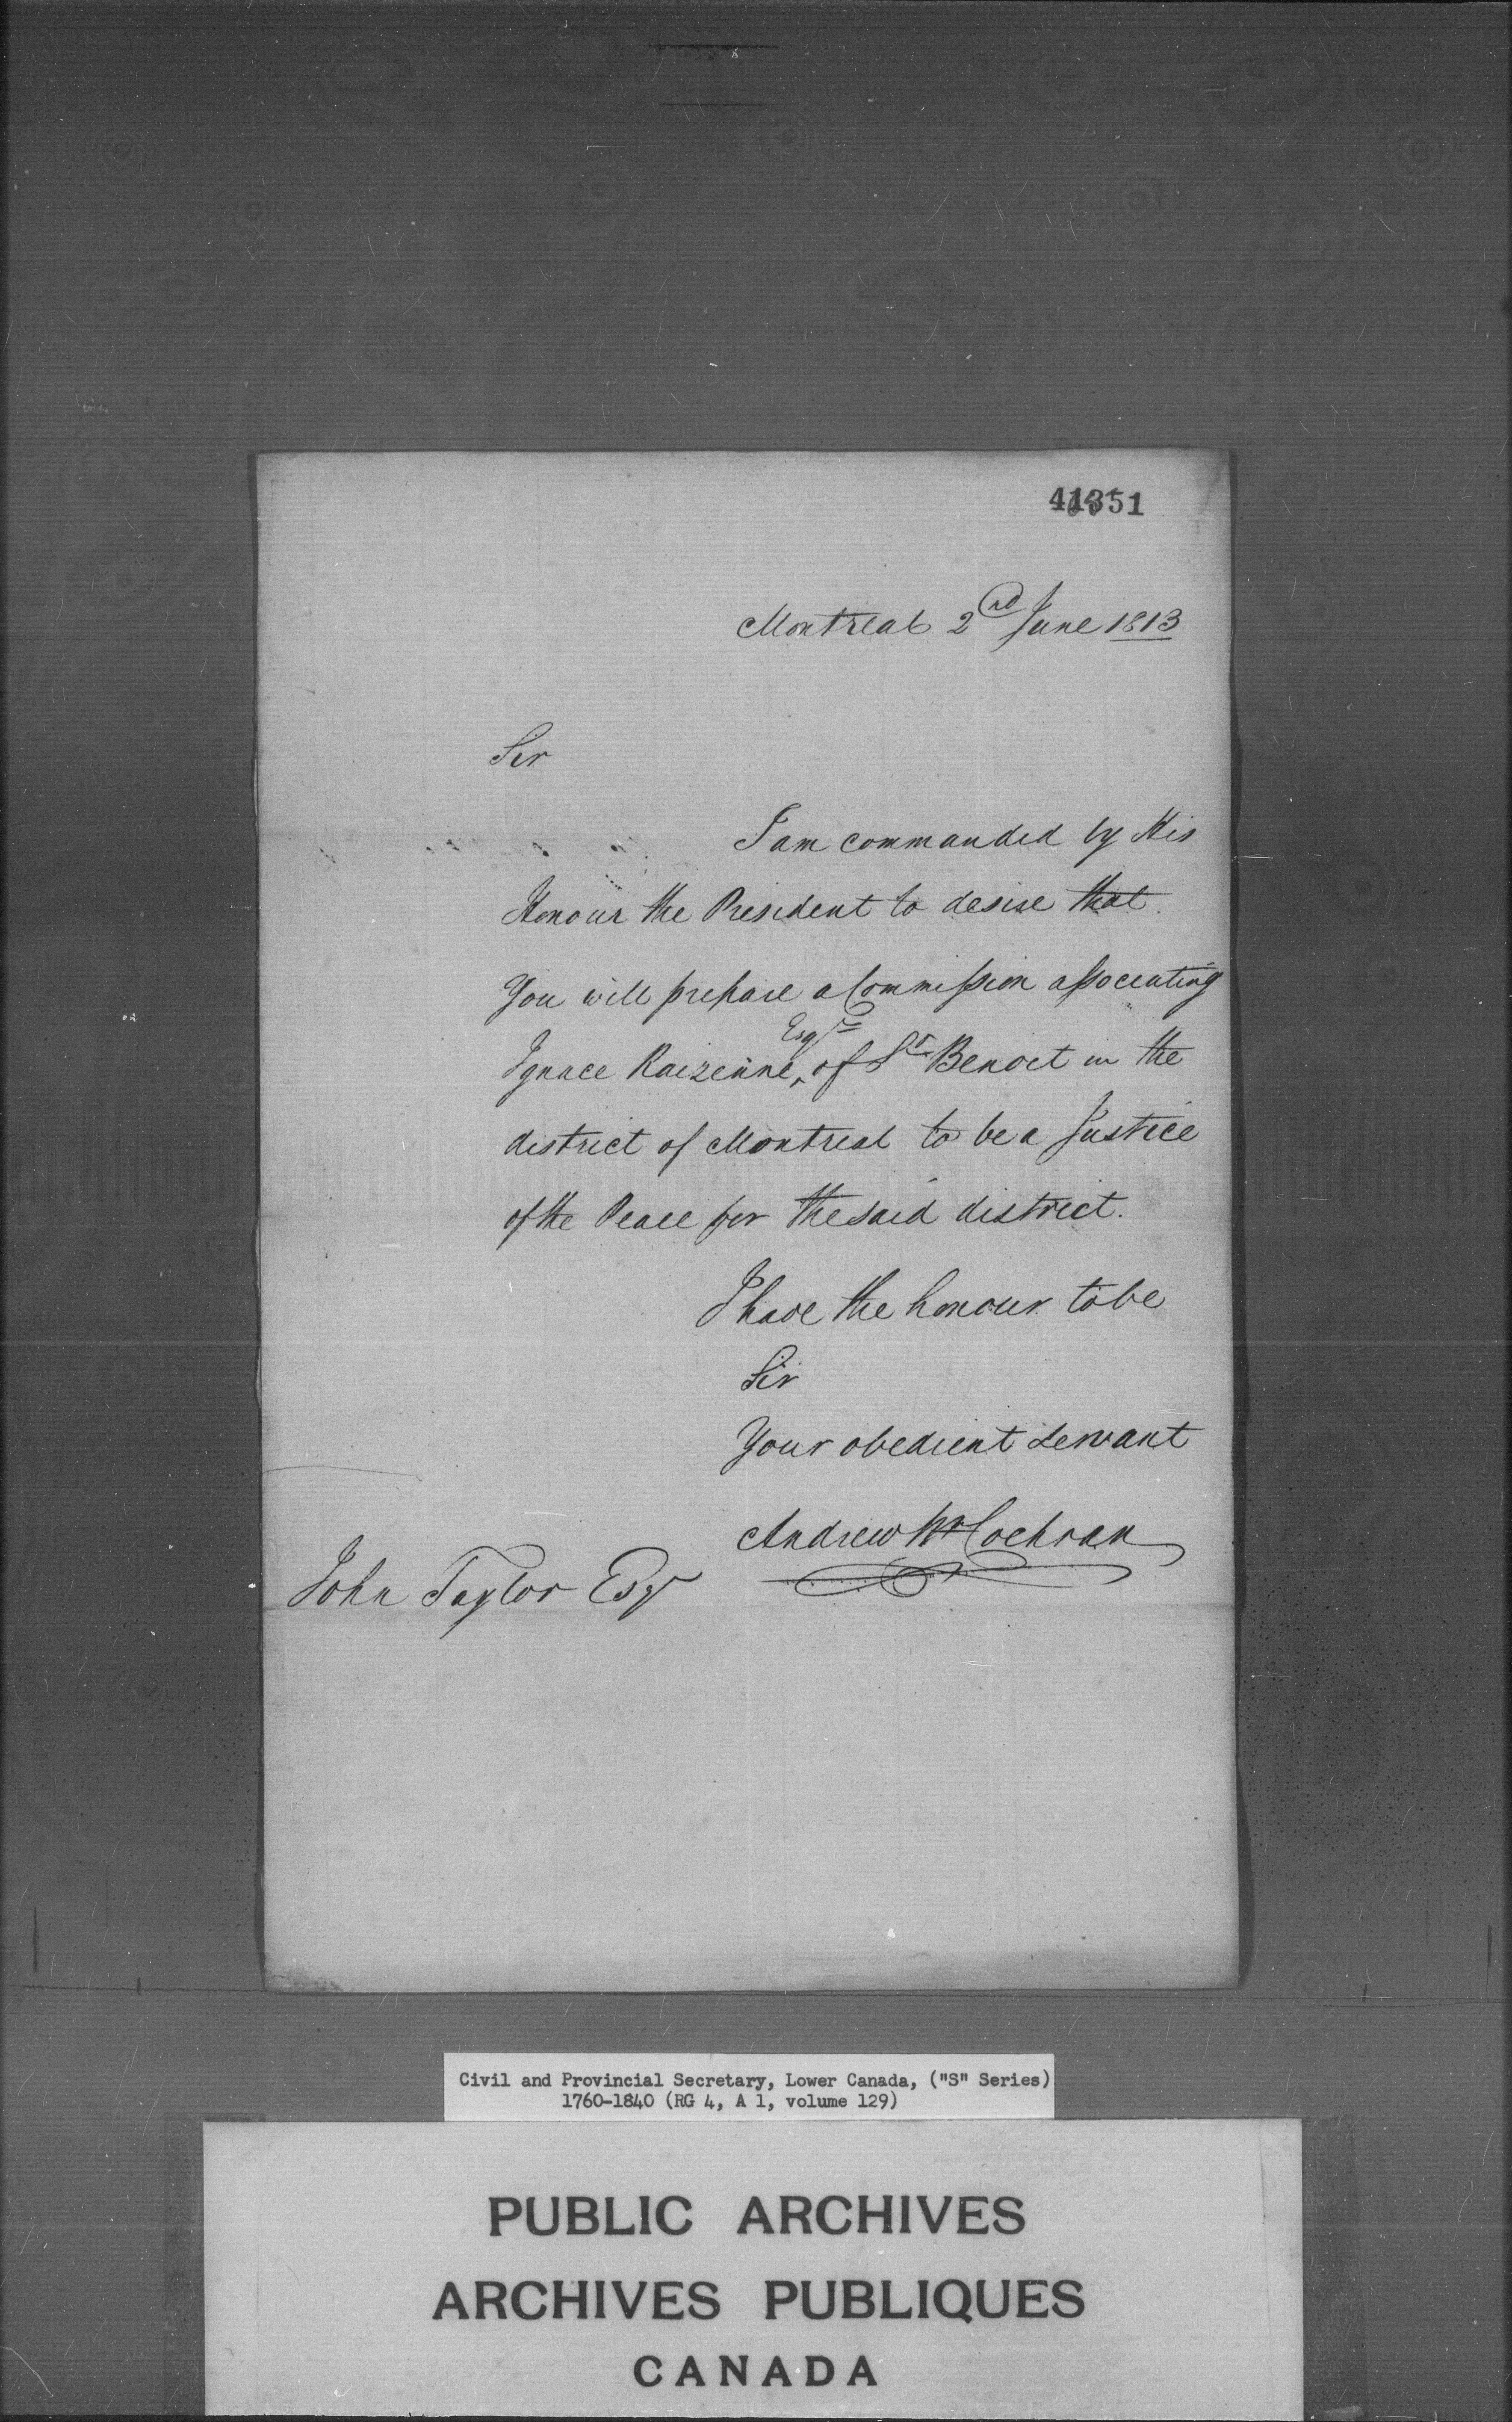 41351
Montreal 2nd June 1813
Sir
I am commanded by His
Honour the President to desire that
You will prepare a Commission associating
Ignace Raizenne, Esqre of St Benoit in the
district of Montreal to be a Justice
of the Peace for the said district.
I have the honour to be
Sir
Your obedient Servant
Andrew Wm Cochran
John Taylor Esqr
Civil and Provincial Secretary, Lower Canada, ("S" Series)
1760-1840 (RG 4, A 1, volume 129)
PUBLIC ARCHIVES
ARCHIVES PUBLIQUES
CANADA